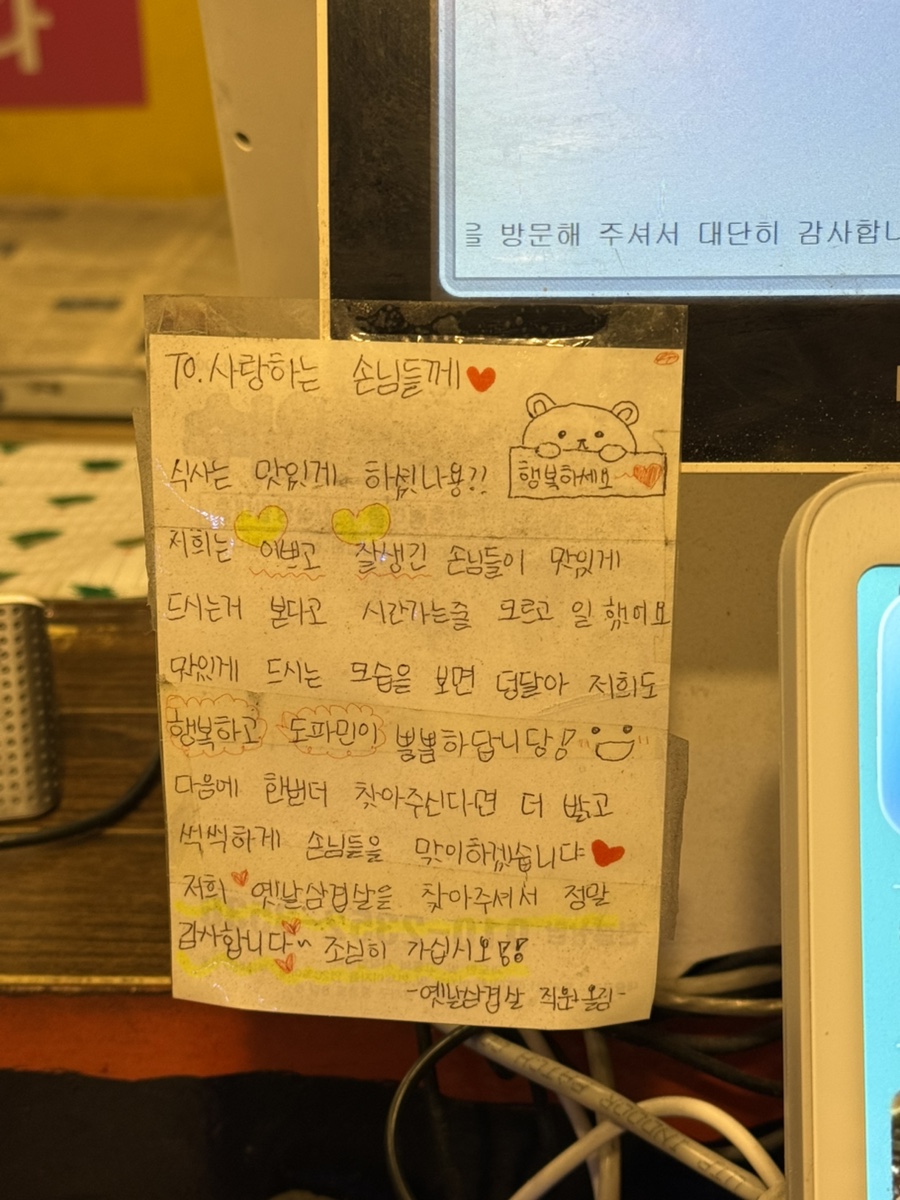 을 방문해 주셔서 대단히 감사합니
TO. 사랑하는 손님들께
행복하세요
식사는 맛있게 하셨나용??
저희는 이쁘고 잘생긴 손님들이 맛있게
드시는거 본다고 시간가는줄 모르고 일 했어요
맛있게 드시는 모습을 보면 덩달아 저희도
행복하고 도파민이 뿜뿜하답니당!
다음에 한번더 찾아주신다면 더 밝고
씩씩하게 손님들을 맞이하겠습니다
저희 옛날삼겹살을 찾아주셔서 정말
감사합니다~ 조심히 가십시오!!
-옛날삼겹살 직원 올림-